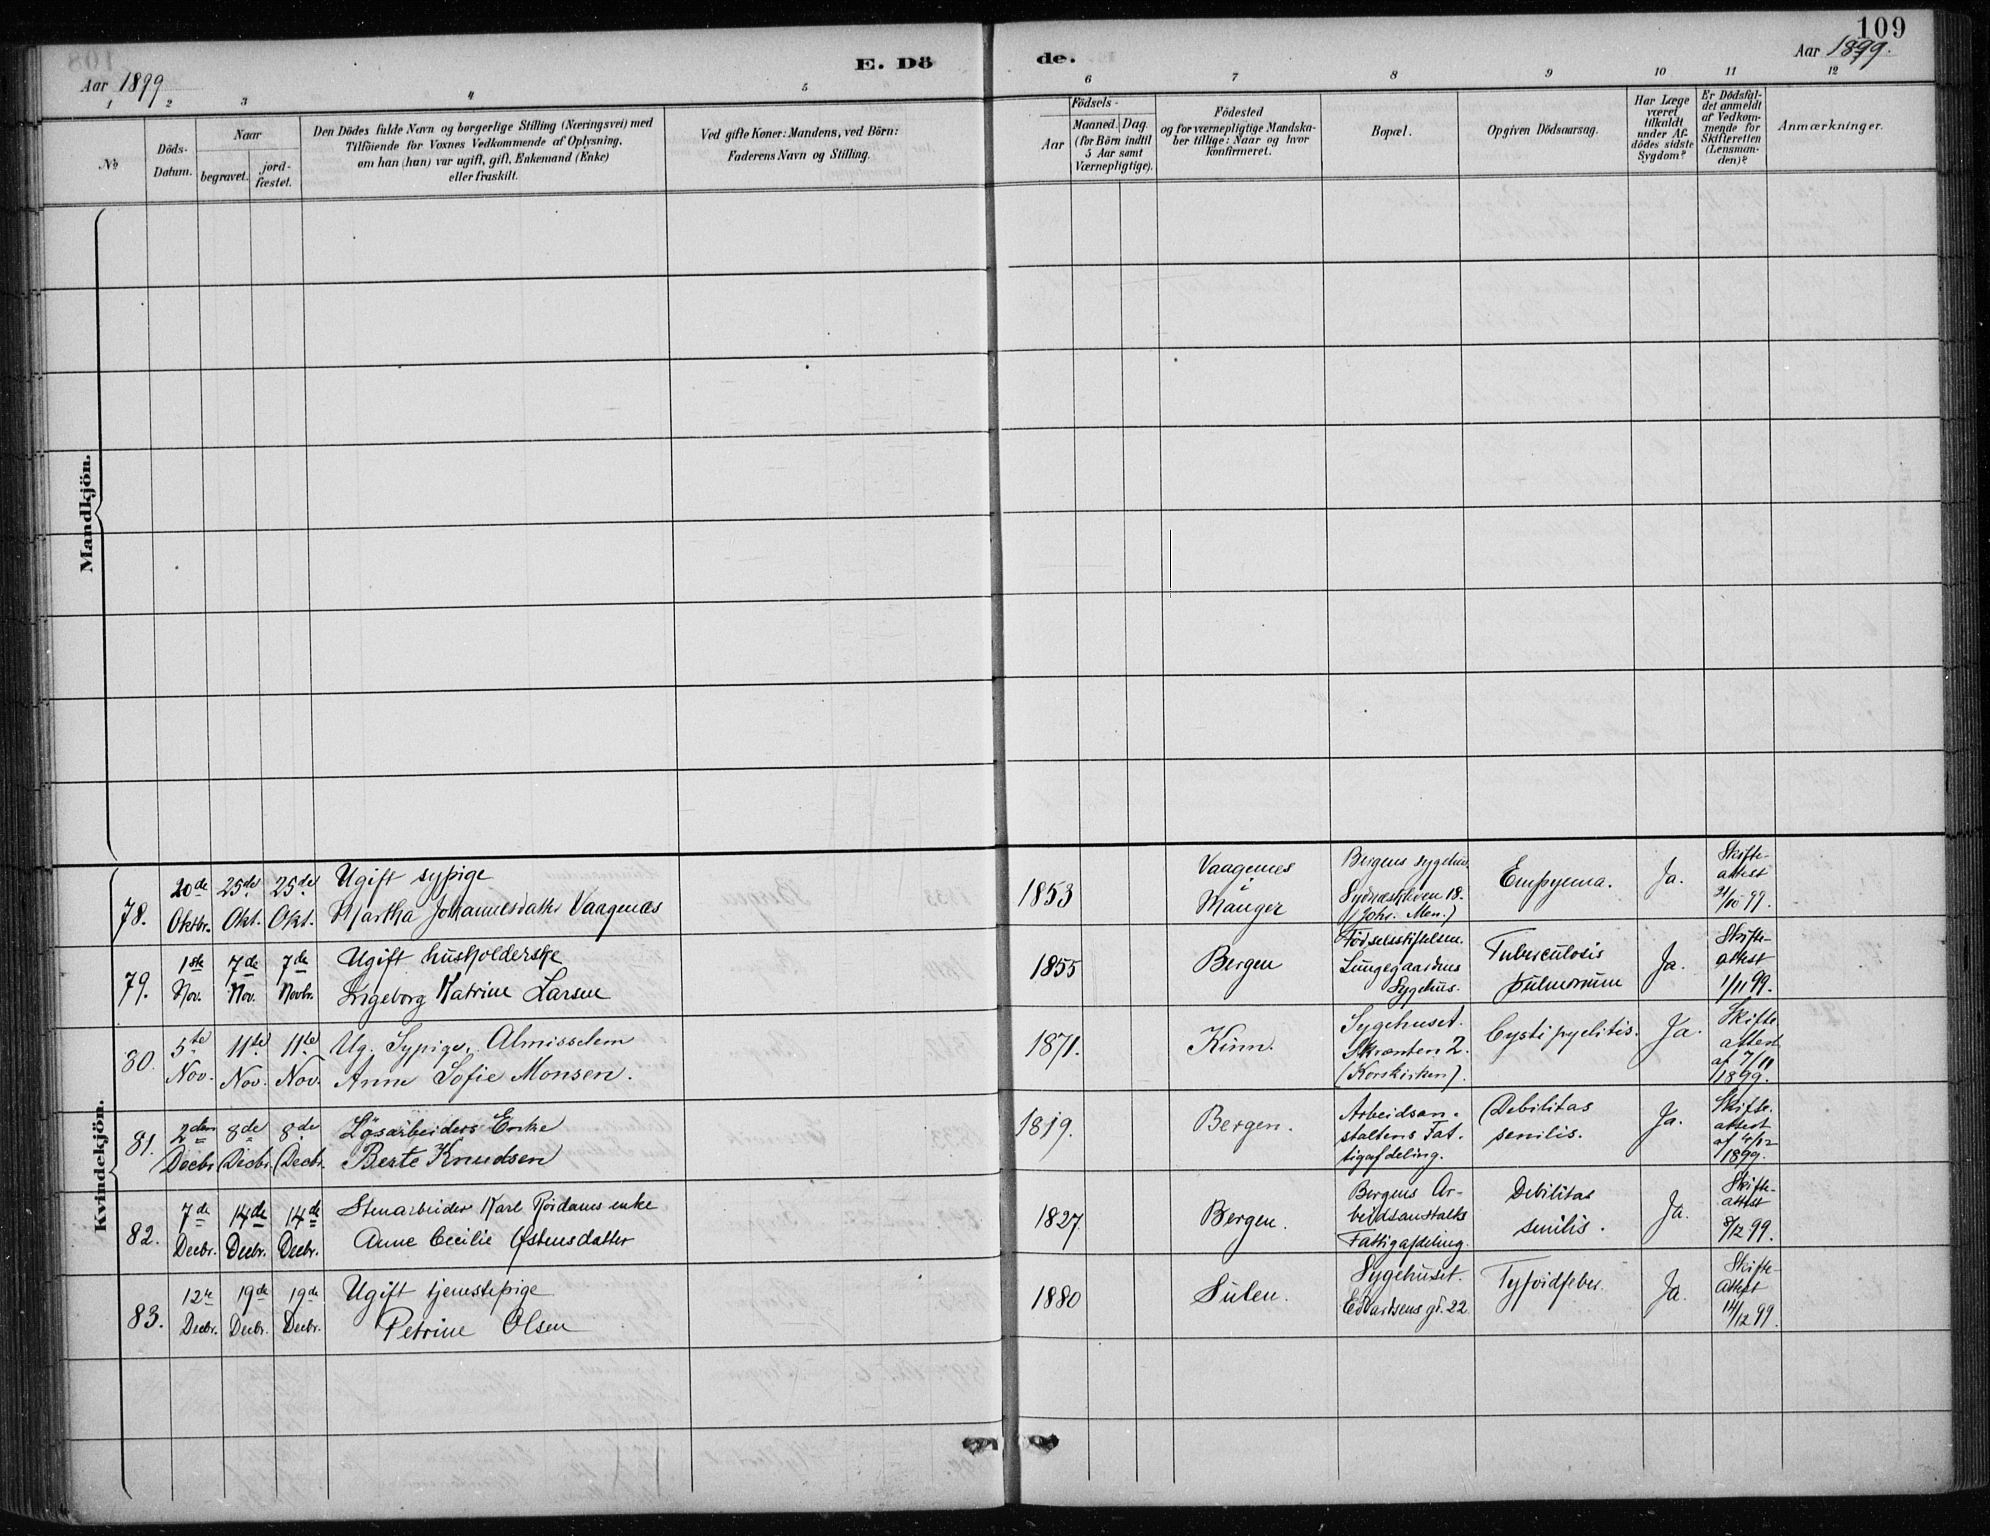 109
Aar 1899
E. Dö
de.
Aar 1899.
1 2 3 4 5 6 7 8 9 10 11 12
№
Döds-
Datum.
Naar
begravet.
jord-
fæstet.
Den Dödes fulde Navn og borgerlige Stilling (Næringsvei) med
Tilföiende for Voxnes Vedkommende af Oplysning,
om han (hun) var ugift, gift, Enkemand (Enke)
eller fraskilt.
Ved gifte Koner: Mandens, ved Börn:
Faderens Navn og Stilling.
Födsels-
Aar
Maaned. Dag.
(for Börn indtil
5 Aar samt
Værnepligtige).
Födested
og for værnepligtige Mandska-
ber tillige: Naar og hvor
konfirmeret.
Bopæl.
Opgiven Dödsaarsag.
Har Læge
været
tilkaldt
under Af-
dödes sidste
Sygdom?
Er Dödsfal-
det anmeldt
af Vedkom-
mende for
Skifteretten
(Lensman-
den)?
Anmærkninger.
Mandkjön.
Kvindekjön.
78.
20de
Oktbr.
25de
Okt.
25de
Okt.
Ugift sypige
Martha Johannesdatter Vaagenæs
1853
Vaagenes
Manger
Bergens sygehus.
Sydnæskleven 18.
(Johs. Men.)
Empyema.
Ja.
Skifte-
attest
21/10 99.
79.
1ste
Nov.
7de
Nov.
7de
Novbr.
Ugift husholderske
Ingeborg Katrine Larsen
1855
Bergen
Födselsstiftelsen.
Lungegaardens
Sygehus.
Tuberculosis
pulmonum
Ja.
Skifte-
attest
1/11 99.
80.
5te
Nov.
11te
Nov.
11te
Nov.
Ug. Sypige, Almisselem
Anne Sofie Monsen.
1871.
Kinn.
Sygehuset.
Skrænten 2.
(Korskirken).
Cystipyelitis.
Ja.
Skifte
attest
af 7/11
1899.
81.
2den
Decbr.
8de
Decbr.
8de
Decbr.
Lösarbeiders Enke
Berte Knudsen
1819.
Bergen.
Arbeidsan-
staltens Fat-
tigafdeling.
Debilitas
senilis.
Ja.
Skifte-
attest
af 4/12
1899.
82.
7de
Decbr.
14de
Decbr.
14de
Decbr.
Stenarbeider Karl Rördams enke
Anne Cecilie Østensdatter
1827.
Bergen.
Bergens Ar-
beidsanstalts
Fattigafdeling.
Debilitas
senilis.
Ja.
Skifte-
attest
8/12 99.
83.
12te
Decbr.
19de
Decbr.
19de
Decbr.
Ugift tjenestepige
Petrine Olsen
1880
Sulen.
Sygehuset.
Edvardsens gt. 22
Tyfoidfeber.
Ja.
Skifte-
attest
14/12 99.